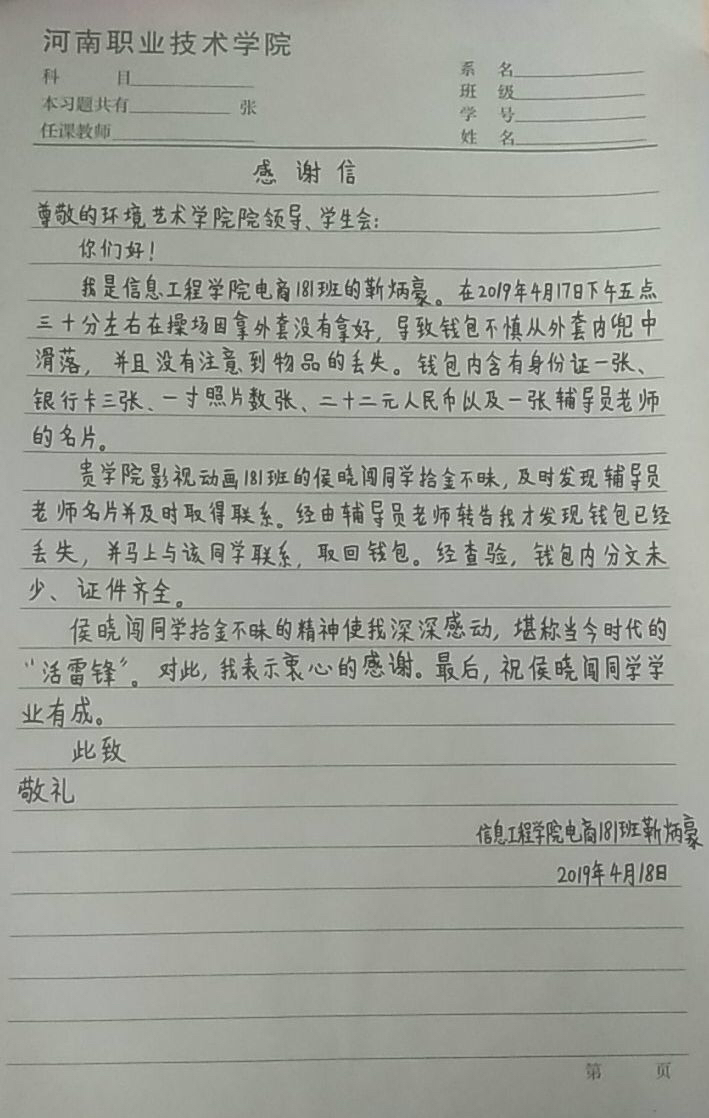 河南职业技术学院
科 目
系 名
班 级
本习题共有 张
学 号
任课教师
姓 名
感谢信
尊敬的环境艺术学院院领导、学生会:
你们好!
我是信息工程学院电商181班的靳炳豪。在2019年4月17日下午五点
三十分左右在操场因拿外套没有拿好,导致钱包不慎从外套内兜中
滑落,并且没有注意到物品的丢失。钱包内含有身份证一张、
银行卡三张、一寸照片数张、二十二元人民币以及一张辅导员老师
的名片。
贵学院影视动画181班的侯晓闯同学拾金不昧,及时发现辅导员
老师名片并及时取得联系。经由辅导员老师转告我才发现钱包已经
丢失,并马上与该同学联系,取回钱包。经查验,钱包内分文未
少、证件齐全。
侯晓闯同学拾金不昧的精神使我深深感动,堪称当今时代的
“活雷锋”。对此,我表示衷心的感谢。最后,祝侯晓闯同学学
业有成。
此致
敬礼
信息工程学院电商181班靳炳豪
2019年4月18日
第 页